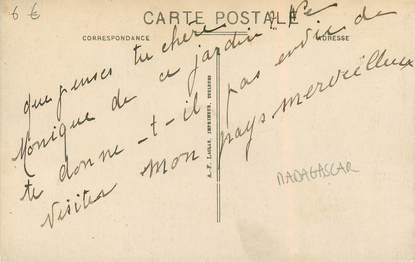 6 €
CARTE POSTALE
CORRESPONDANCE
ADRESSE
que penses tu chère
Monique de ce jardin ? Ne
te donne-t-il pas envie de
visiter mon pays merveilleux
IMPRIMEUR, TOULOUSE
MADAGASCAR